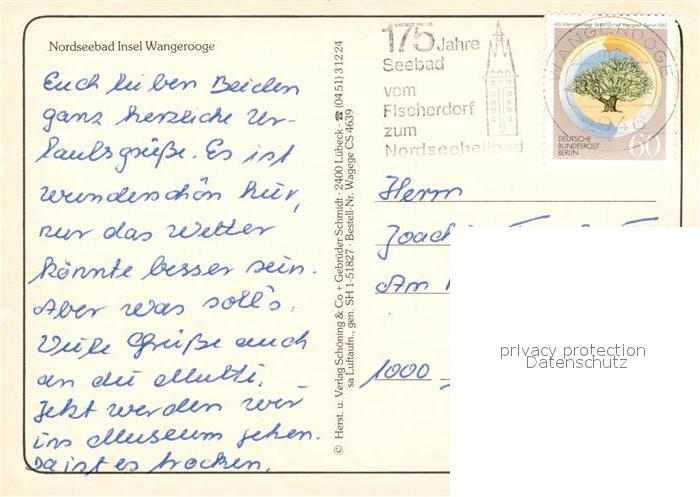 Nordseebad Insel Wangerooge
Euch lieben Beiden
ganz herzliche Ur-
laubsgrüße. Es ist
wunderschön hier,
nur das Wetter
könnte besser sein.
Aber was soll's.
Viele Grüße auch
an die Mutti.
Jetzt werden wir
ins Museum gehen.
Da ist es trocken.
© Herst. u. Verlag Schöning & Co + Gebrüder Schmidt · 2400 Lübeck · ☎ (04 51) 3 12 24
sa Luftaufn., gen. SH 1-51827 · Bestell-Nr. Wagege CS 4639
175 Jahre
Seebad
vom
Fischerdorf
zum
Nordseeheilbad
WANGEROOGE
2946
XVI Internationaler Botanischer Kongreß Berlin 1987
DEUTSCHE
BUNDESPOST
BERLIN
60
Herrn
Joachi
Am
1000
privacy protection
Datenschutz